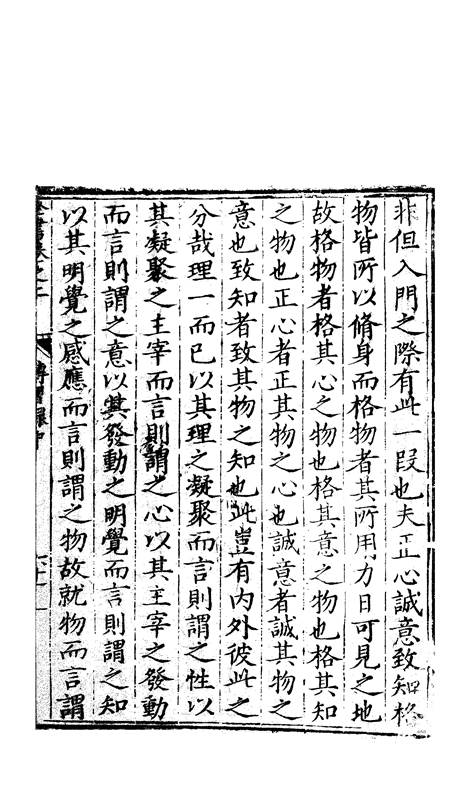 非但入門之際有此一段也夫正心誠意致知格
物皆所以脩身而格物者其所用力日可見之地
故格物者格其心之物也格其意之物也格其知
之物也正心者正其物之心也誠意者誠其物之
意也致知者致其物之知也此豈有内外彼此之
分哉理一而已以其理之凝聚而言則謂之性以
其凝聚之主宰而言則謂之心以其主宰之發動
而言則謂之意以其發動之明覺而言則謂之知
以其明覺之感應而言則謂之物故就物而言謂
傳習録中